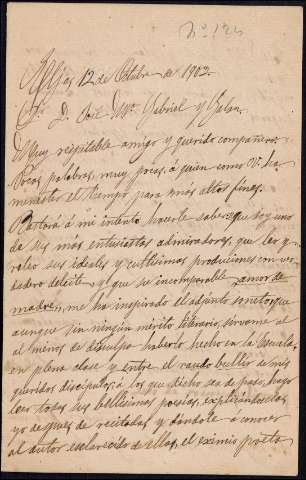 Nº 124
12 de Octubre de 1902.
Sr. D. José Mª Gabriel y Galan.
Muy respitable amigo y querido compañero:
Pocas palabras, muy pocas, á quien como V. ha
menester el tiempo para más altos fines.
Bastará á mi intento hacerle saber que soy uno
de sus más entusiastas admiradores, que leo y
releo sus ideales y cultísimas produciones con ver
dadero deleite y que su incomparable "amor de
madre", me ha inspirado el adjunto soneto que
aunque sin ningún mérito literario, sirvame al
menos de disculpa haberlo hecho en la escuela,
en plena clase y entre el raudo bullir de mis
queridos discipulos, á los que dicho sea de paso, hago
leer todas sus bellísimas poesias, explicándoselas
yo despues de recitadas y dándole á conocer
al autor esclarecido de ellas, el eximio poeta